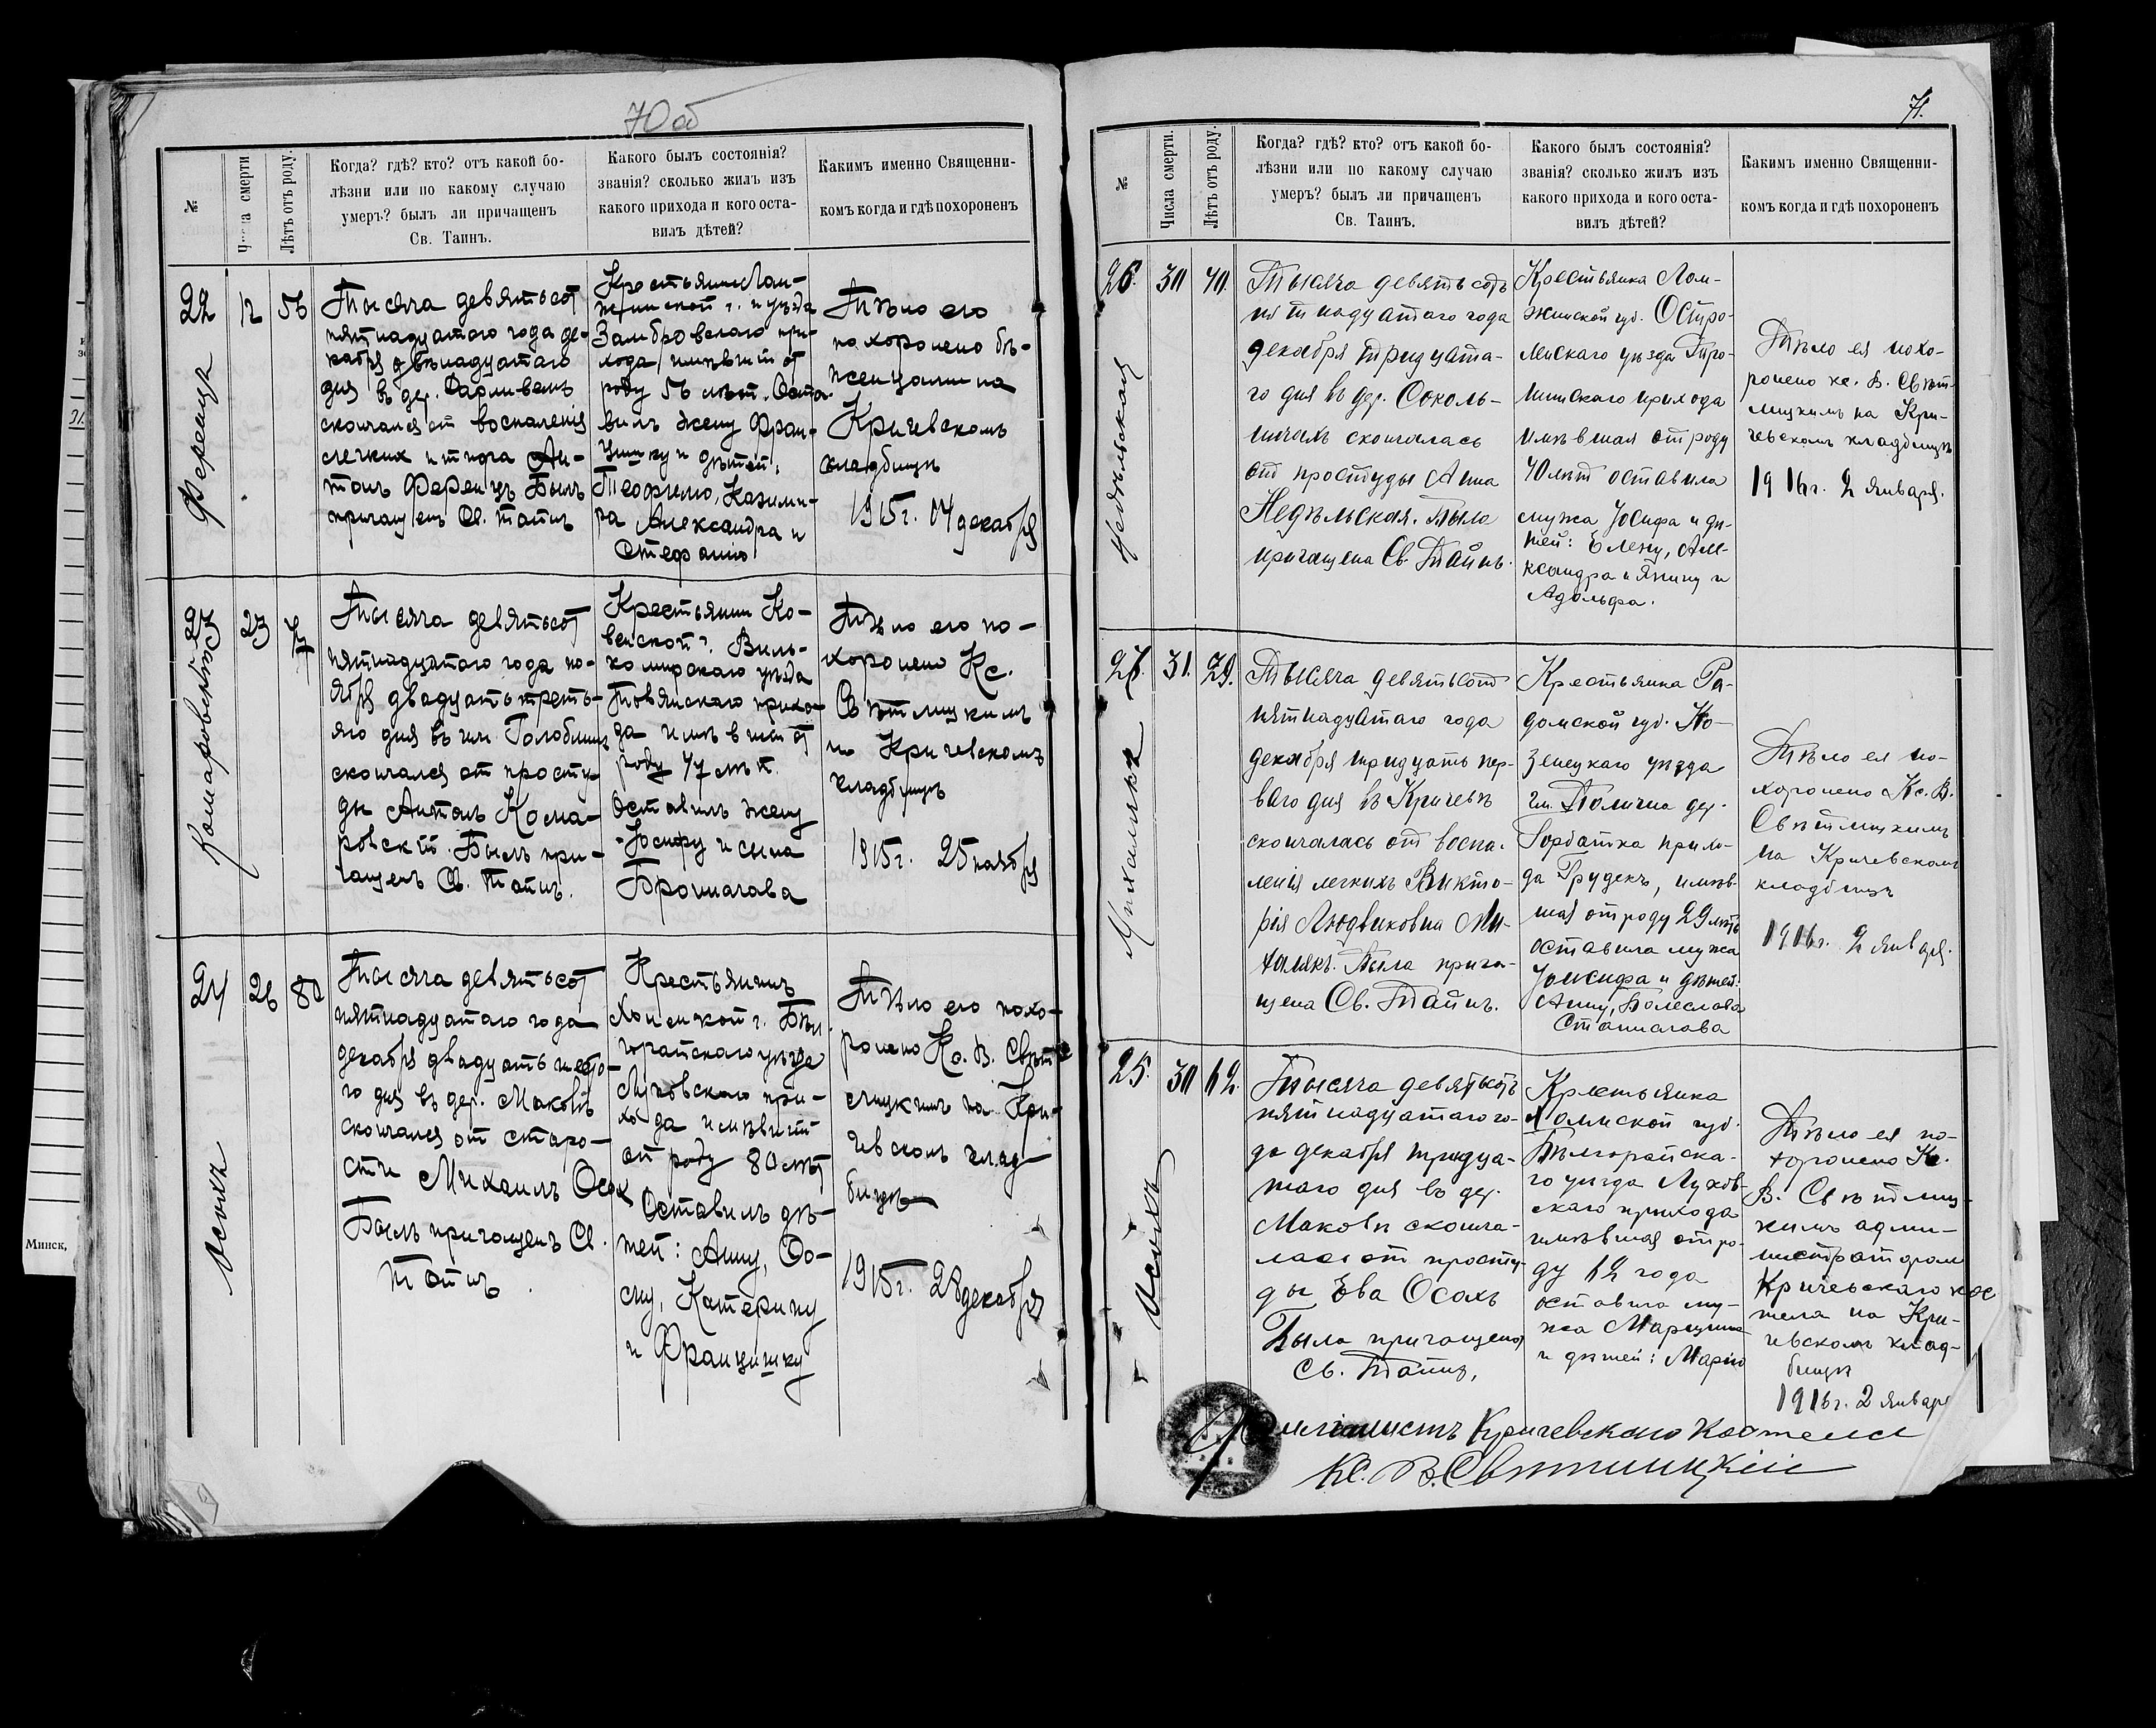 70 об
№
Числа смерти
Лѣтъ отъ роду.
Когда? гдѣ? кто? отъ какой бо-
лѣзни или по какому случаю
умеръ? былъ ли причащенъ
Св. Таинъ.
Какого былъ состоянія?
званія? сколько жилъ изъ
какого прихода и кого оста-
вилъ дѣтей?
Какимъ именно Священни-
комъ когда и гдѣ похороненъ
22
Ференца
12
56
Тысяча девятьсот
пятнадцатого года де-
кабря двѣнадцатого
дня въ дер.
скончался от воспаленія
легких и тифа Ан-
тонъ Ференцъ Былъ
причащенъ Св. таинъ
Крестьянин Лом-
жинской г. и уѣзда
Замбровского при-
хода имѣвшій от
роду 56 лѣт. Оста-
вилъ жену Фран-
цишку и дѣтей:
Теофилю, Казими-
ра Александра и
Стефанію
Тѣло его
похоронено бѣ-
женцами на
Кричевскомъ
кладбищѣ
1915 г. 14 декабря
23
Комаровскій
23
47
Тысяча девятьсот
пятнадцатого года но-
ября двадцать треть-
яго дня въ им.
скончался от просту-
ды Антонъ Кома-
ровскій. Былъ при-
чащенъ Св. таинъ.
Крестьянин Ко-
венской г. Виль-
комирскаго уѣзда
Товянскаго прихо-
да имѣвшій от
роду 47 лѣт.
Оставилъ жену
Юзефу и сына
Бронислава
Тѣло его по-
хоронено Кс.
Свѣтлицкимъ
на Кричевскомъ
кладбищѣ
1915 г. 25 ноября
24
Осохъ
26
80
Тысяча девятьсот
пятнадцатого года
декабря двадцать шесто-
го дня въ дер. Маковѣ
скончался от старо-
сти Михаилъ Осох
Былъ причащенъ Св.
таинъ.
Крестьянинъ
Холмской г. Бѣл-
горайскаго уѣзда
Луховского при-
хода имѣвшій
от роду 80 лѣт
Оставилъ дѣ-
тей: Анну, Зо-
сю, Катерину
и Францишку
Тѣло его похо-
ронено Кс. В. Свѣт-
лицкимъ на Кри-
чевском клад-
бищѣ
1915 г. 28 декабря
71.
№
Числа смерти.
Лѣтъ отъ роду.
Когда? гдѣ? кто? отъ какой бо-
лѣзни или по какому случаю
умеръ? былъ ли причащенъ
Св. Таинъ.
Какого былъ состоянія?
званія? сколько жилъ изъ
какого прихода и кого оста-
вилъ дѣтей?
Какимъ именно Священни-
комъ когда и гдѣ похороненъ
26.
Недѣльская
30
40.
Тысяча девятьсотъ
пятнадцатаго года
декабря тридцата-
го дня въ дер. Соколь-
ничахъ скончалась
от простуды Анна
Недѣльская. Была
причащена Св. Тайнъ.
Крестьянка Лом-
жинской губ. Остро-
ленскаго уѣзда Тро-
шинскаго прихода
имѣвшая от роду
40 лѣт оставила
мужа Іосифа и дѣ-
тей: Елену, Але-
ксандра и Янину и
Адольфа.
Тѣло ея похо-
ронено кс. В. Свѣт-
лицкимъ на Кри-
чевском кладбищѣ
1916 г. 2 января.
27.
Михалякъ
31.
29.
Тысяча девятьсот
пятнадцатаго года
декабря тридцать пер-
ваго дня въ Кричевѣ
скончалась от воспа-
ленія легкихъ Викто-
рія Людвиковна Ми-
халякъ. Была прича-
щена Св. Тайнъ.
Крестьянка Ра-
домской губ. Ко-
зенецкаго уѣзда
гм. Полична дер.
Горбатка прихо-
да Грудекъ, имѣв-
шая от роду 29 лѣтъ
оставила мужа
Іосифа и дѣтей:
Анну, Болеслава
Станислава
Тѣло ея по-
хоронено Кс. В.
Свѣтлицкимъ
на Кричевскомъ
кладбищѣ
1916 г. 2 января.
25.
Осохъ
30
62
Тысяча девятьсотъ
пятнадцатого го-
да декабря тридца-
таго дня въ дер.
Маковѣ сконча-
лась от просту-
ды Ева Осохъ
Была причащена
Св. Таинъ,
Крестьянка
Холмской губ.
Бѣлгорайска-
го уѣзда Лухов-
скаго прихода
имѣвшая от ро-
ду 62 года
оставила му-
жа Марцина
и дѣтей: Марію
Тѣло ея по-
хоронено Кс.
В. Свѣтлиц-
кимъ адми-
нистратором
Кричевскаго кос
тела на Кри-
чевскомъ клад-
бищѣ
1916 г. 2 января
Кричевскаго Костела
Кс. В. Свѣтлицкій
Минск,